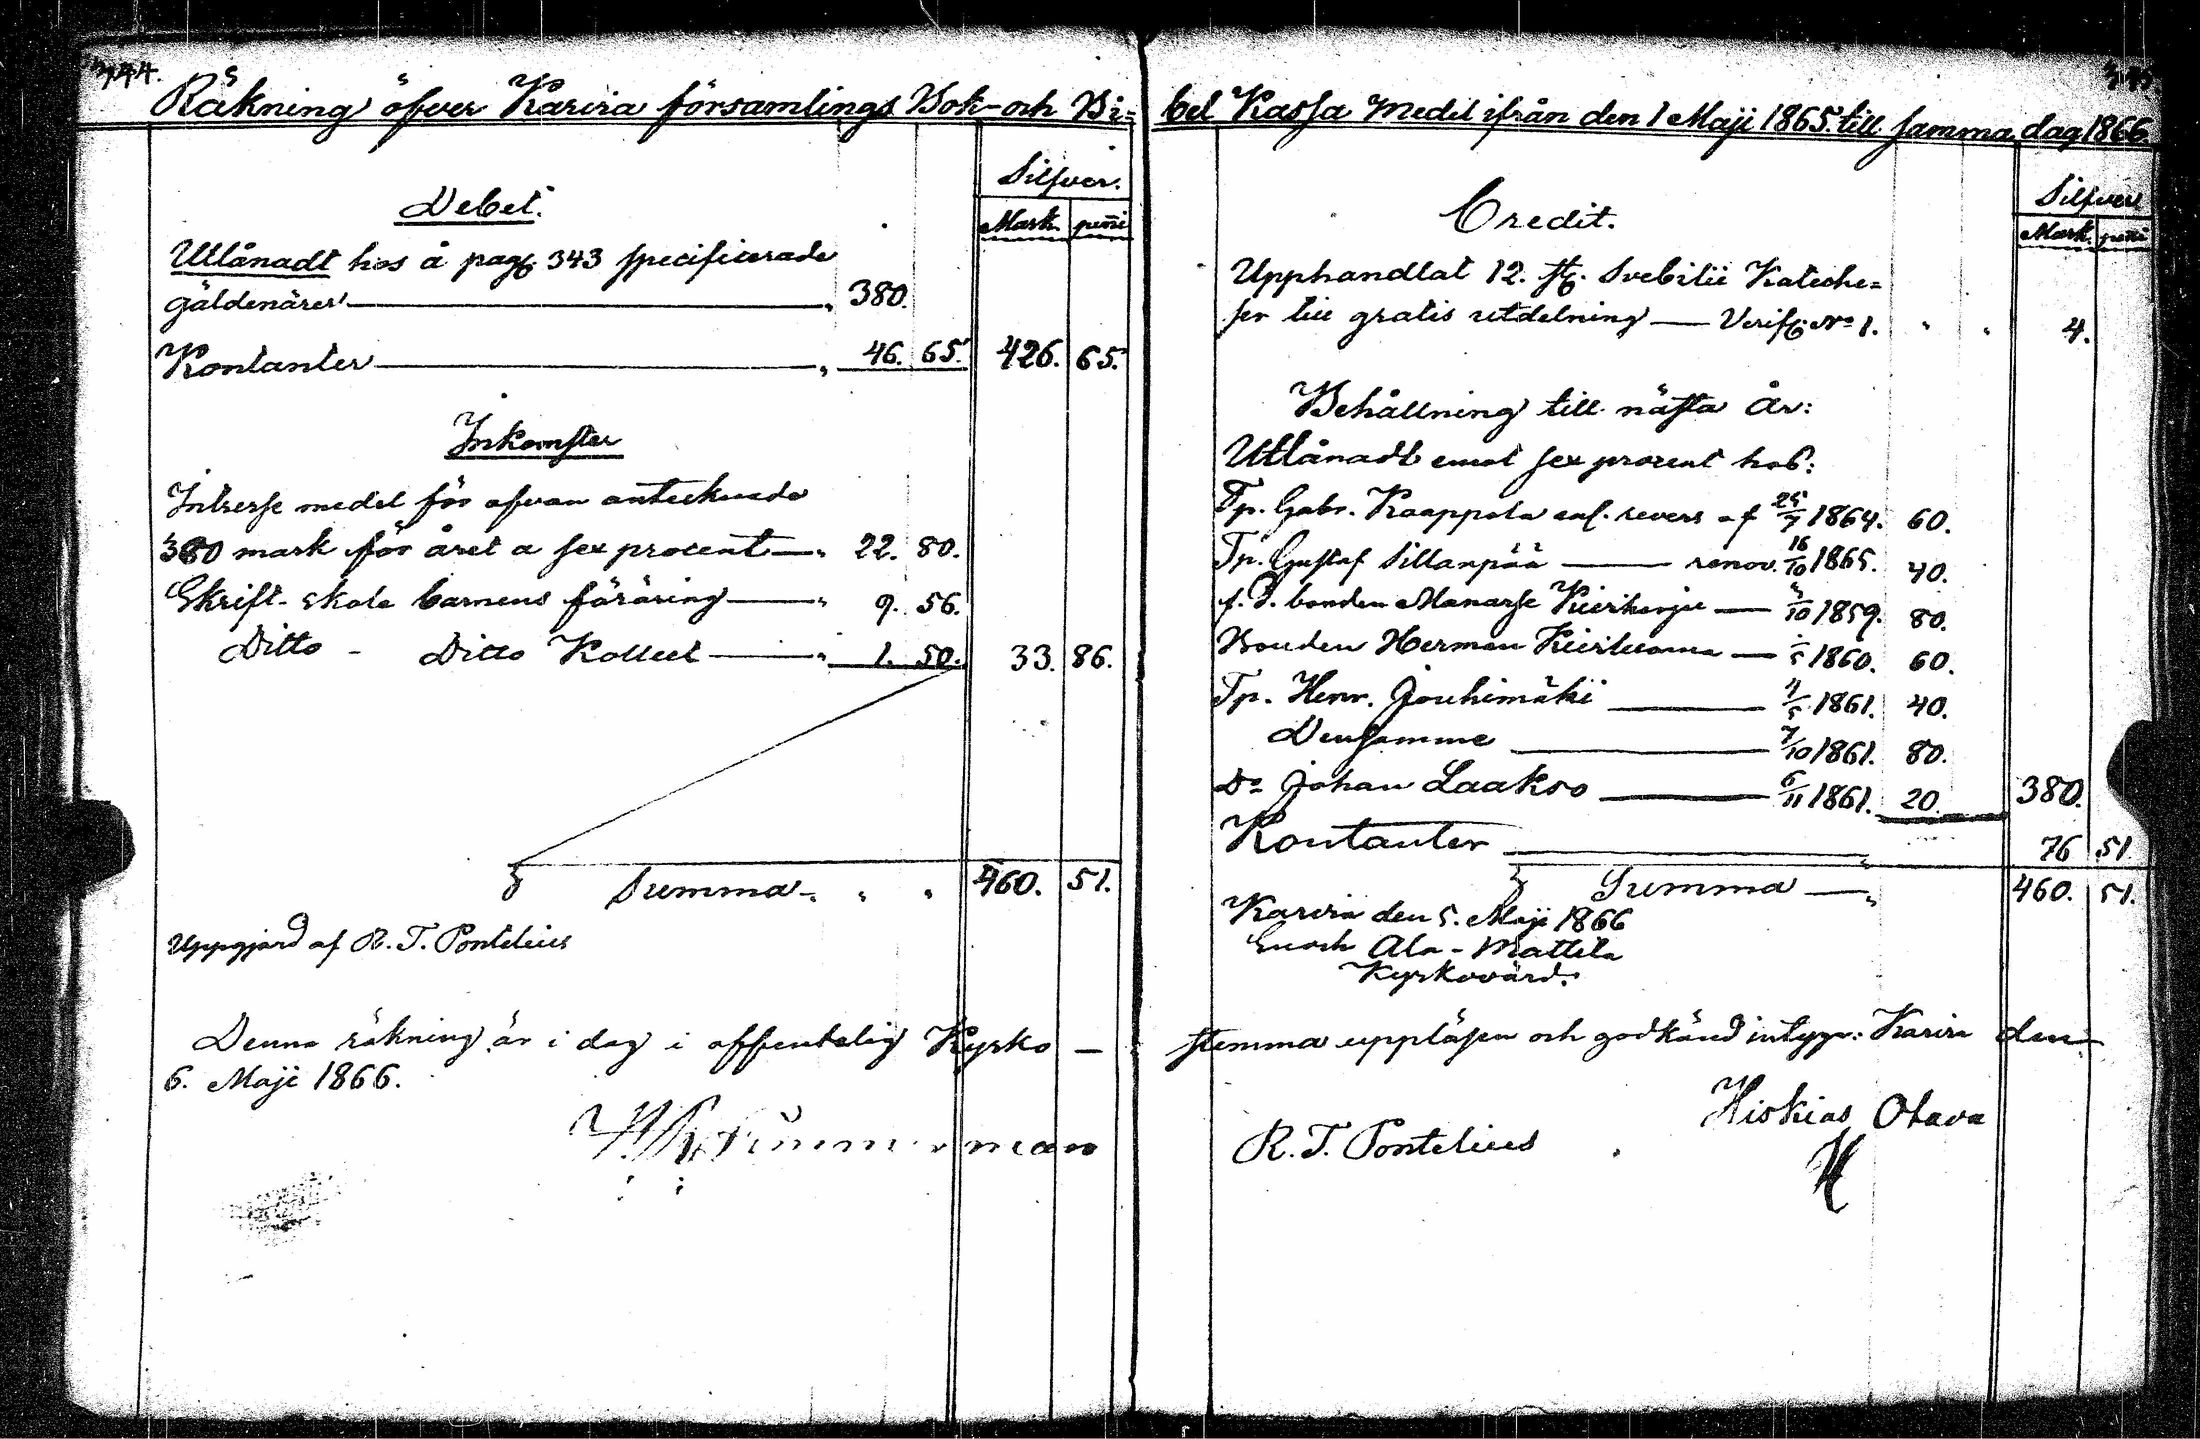 344.
Räkning öfver Karvia församlings Bok- och Bi-
Silfver.
Debet.
Mark. penni
Utlånadt hos å pag. 343 specificerade
gäldenärer 380.
Kontanter 46. 65. 426. 65.
Inkomster
Intresse medel för ofvan antecknade
380 mark för året a sex procent 22. 80.
Skrift-skole barnens föräring 9. 56.
Ditto - Ditto Kollect 1. 50. 33. 86.
Summa 460. 51.
Uppgjord af R. T. Pontelius
Denna räkning är i dag i offentelig Kyrko-
6. Maji 1866.
345.
bel Kassa Medel ifrån den 1 Maji 1865. till samma dag 1866.
Silfver
Credit.
Mark. penni
Upphandlat 12. st. Svebilii Kateche=
ser till gratis utdelning — Verif. No 1. 4.
Behållning till nästa År:
Utlånadt emot sex procent hos:
Tp. Gabr. Kaappola enl. revers af 25/7 1864. 60.
Tp. Gustaf Sillanpää — renov. 16/10 1865. 40.
f. d. bonden Manasse — /10 1859. 80.
Bonden Herman — /5 1860. 60.
Tp. Henr. Jouhimäki — 4/5 1861. 40.
Densamme — 7/10 1861. 80.
Do Johan Laakso — 6/11 1861. 20. 380.
Kontanter 76 51
Summa — 460. 51.
Karvia den 5. Maji 1866
Enoch Ala-Mattila
Kyrkovärd.
stemma uppläsen och godkänd intyga: Karvia den
Hiskias Otava
R. T. Pontelius